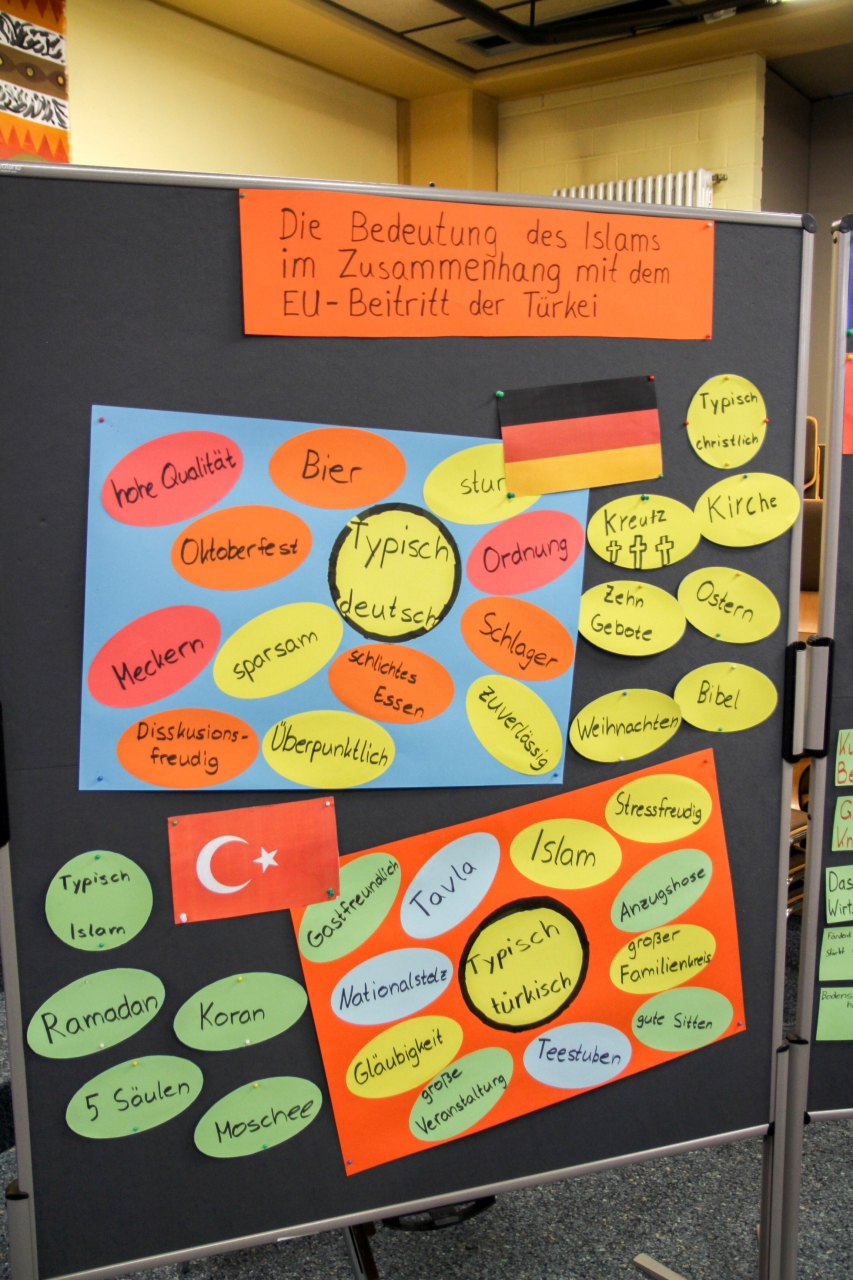 Die Bedeutung des Islams
im Zusammenhang mit dem
EU-Beitritt der Türkei
hohe Qualität
Bier
stur
Oktoberfest
Typisch
deutsch
Ordnung
Meckern
sparsam
schlichtes
Essen
Schlager
Disskusions-
freudig
Überpunktlich
zuverlässig
Typisch
christlich
Kreutz
Kirche
Zehn
Gebote
Ostern
Weihnachten
Bibel
Typisch
Islam
Ramadan
Koran
5 Säulen
Moschee
Gastfreundlich
Tavla
Islam
Stressfreudig
Anzugshose
Nationalstolz
Typisch
türkisch
großer
Familienkreis
Gläubigkeit
große
Veranstaltung
Teestuben
gute Sitten
Das